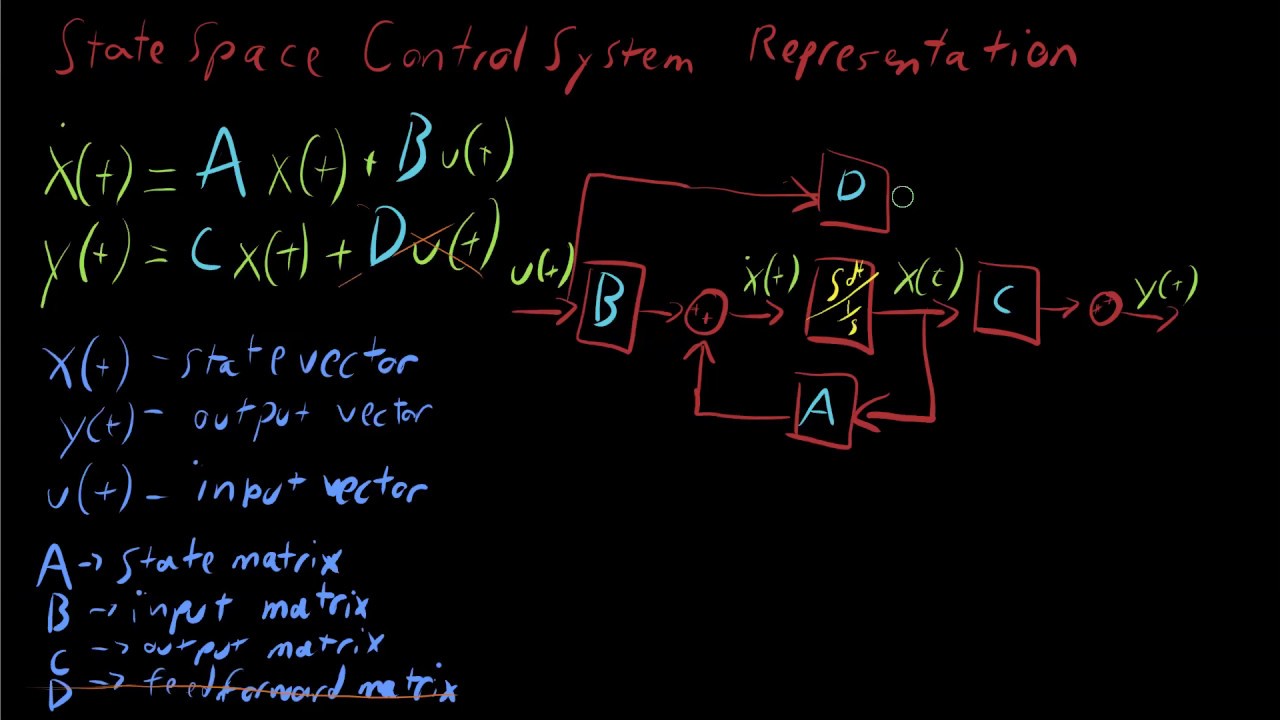 State Space Control System Representation
ẋ(t) = A x(t) + B u(t)
y(t) = C x(t) + D u(t)
x(t) - state vector
y(t) - output vector
u(t) - input vector
A -> state matrix
B -> input matrix
C -> output matrix
D -> feedforward matrix
D
u(t)
B
+ +
ẋ(t)
∫dt
1/s
x(t)
C
+ +
y(t)
A